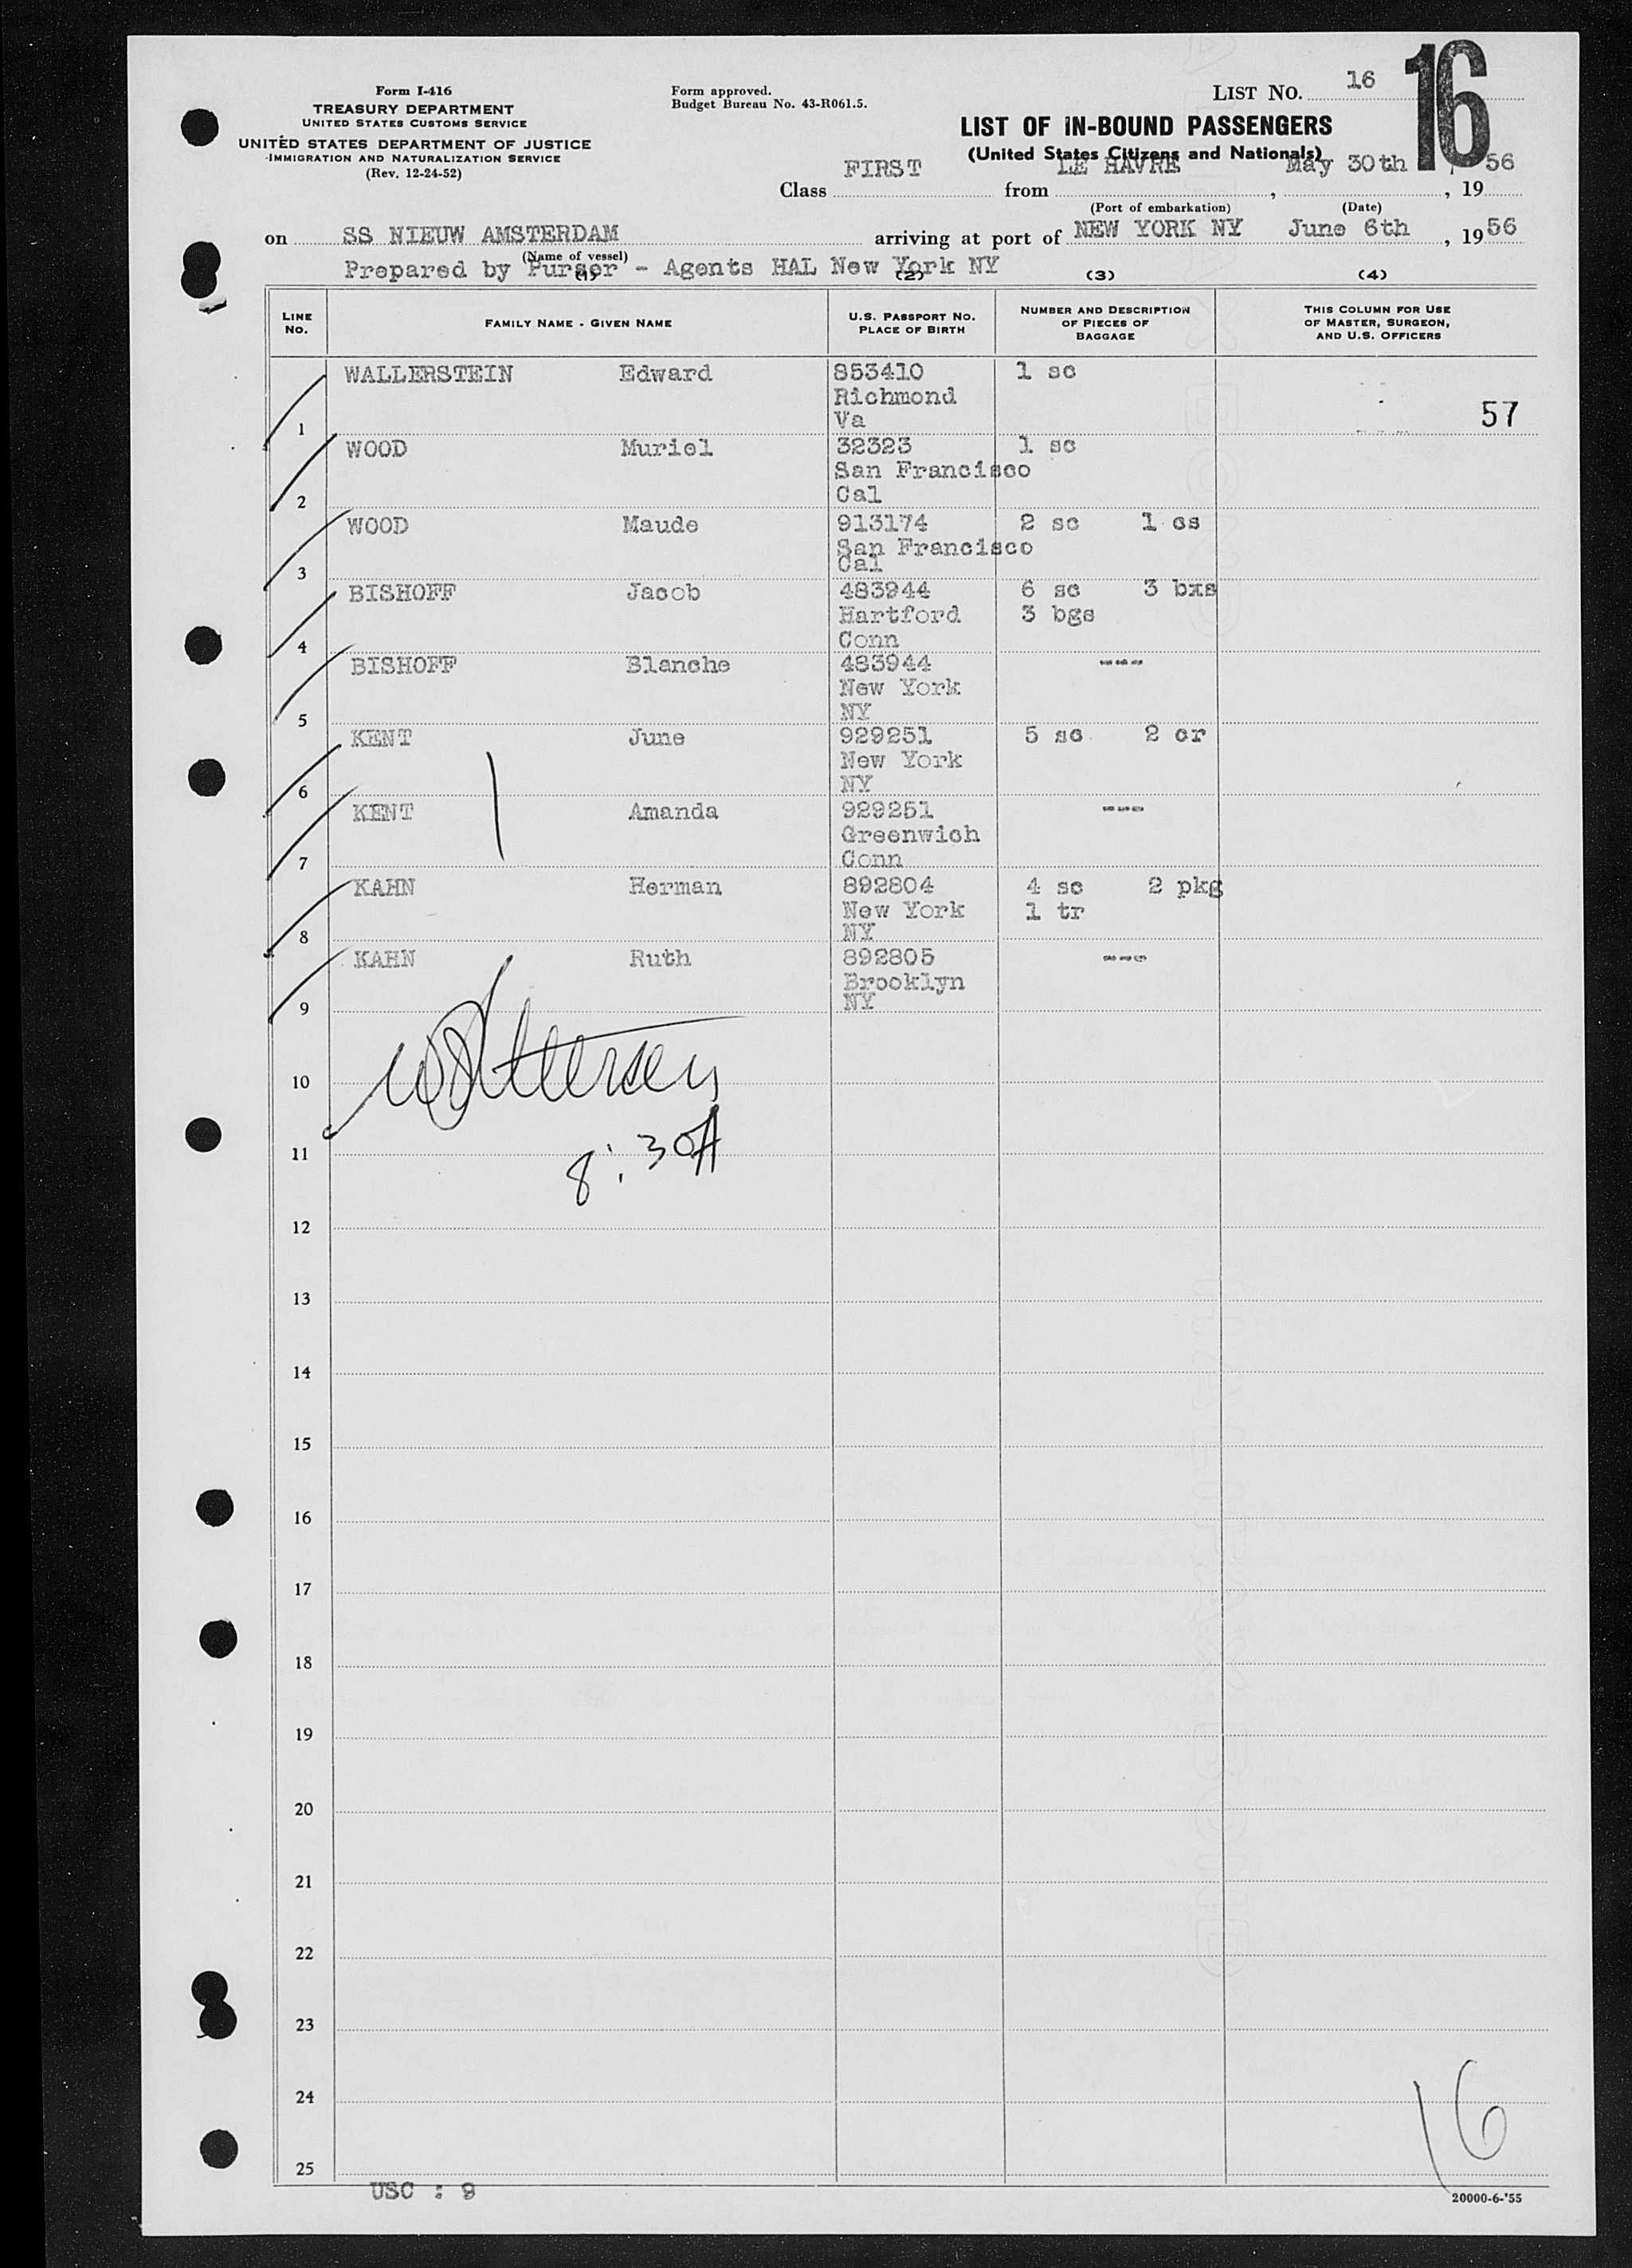 Form I-416
TREASURY DEPARTMENT
UNITED STATES CUSTOMS SERVICE
UNITED STATES DEPARTMENT OF JUSTICE
IMMIGRATION AND NATURALIZATION SERVICE
(Rev. 12-24-52)
Form approved.
Budget Bureau No. 43-R061.5.
LIST NO. 16
16
LIST OF IN-BOUND PASSENGERS
(United States Citizens and Nationals)
Class FIRST from LE HAVRE, May 30th, 1956
(Port of embarkation) (Date)
on SS NIEUW AMSTERDAM arriving at port of NEW YORK NY June 6th, 1956
(Name of vessel)
Prepared by Purser - Agents HAL New York NY
(1) (2) (3) (4)
LINE NO. FAMILY NAME - GIVEN NAME U.S. PASSPORT NO. PLACE OF BIRTH NUMBER AND DESCRIPTION OF PIECES OF BAGGAGE THIS COLUMN FOR USE OF MASTER, SURGEON, AND U.S. OFFICERS
WALLERSTEIN Edward 853410 1 sc
Richmond
1 Va 57
WOOD Muriel 32323 1 sc
San Francisco
2 Cal
WOOD Maude 913174 2 sc 1 cs
San Francisco
3 Cal
BISHOFF Jacob 483944 6 sc 3 bxs
Hartford 3 bgs
4 Conn
BISHOFF Blanche 483944 ---
New York
5 NY
KENT June 929251 5 sc 2 cr
New York
6 NY
KENT Amanda 929251 ---
Greenwich
7 Conn
KAHN Herman 892804 4 sc 2 pkg
New York 1 tr
8 NY
KAHN Ruth 892805 ---
Brooklyn
9 NY
10
11
8:30A
12
13
14
15
16
17
18
19
20
21
22
23
24
25
16
USC : 9
20000-6-'55